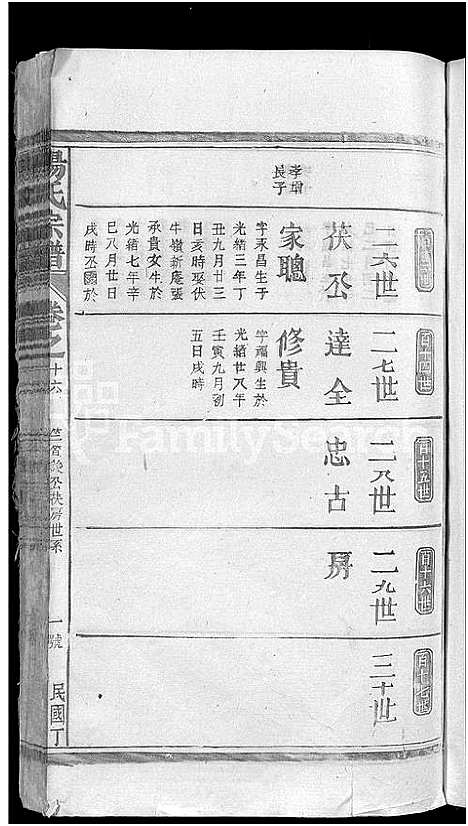 二六世
二七世
二八世
二九世
三十世
百十五世
百十六世
百十七世
茯丕達全忠古房
孝增
長子
家聰
字永昌生子
光緒三年丁
丑九月廿三
日亥時娶伏
牛嶺新庵張
承貴女生於
光緒七年辛
巳八月廿日
戌時丕國於
修貴
字福興生於
光緒廿八年
壬寅九月初
五日戌時
楊氏宗譜
卷之十六
丕扶房世系
一號
民國丁
FamilySearch